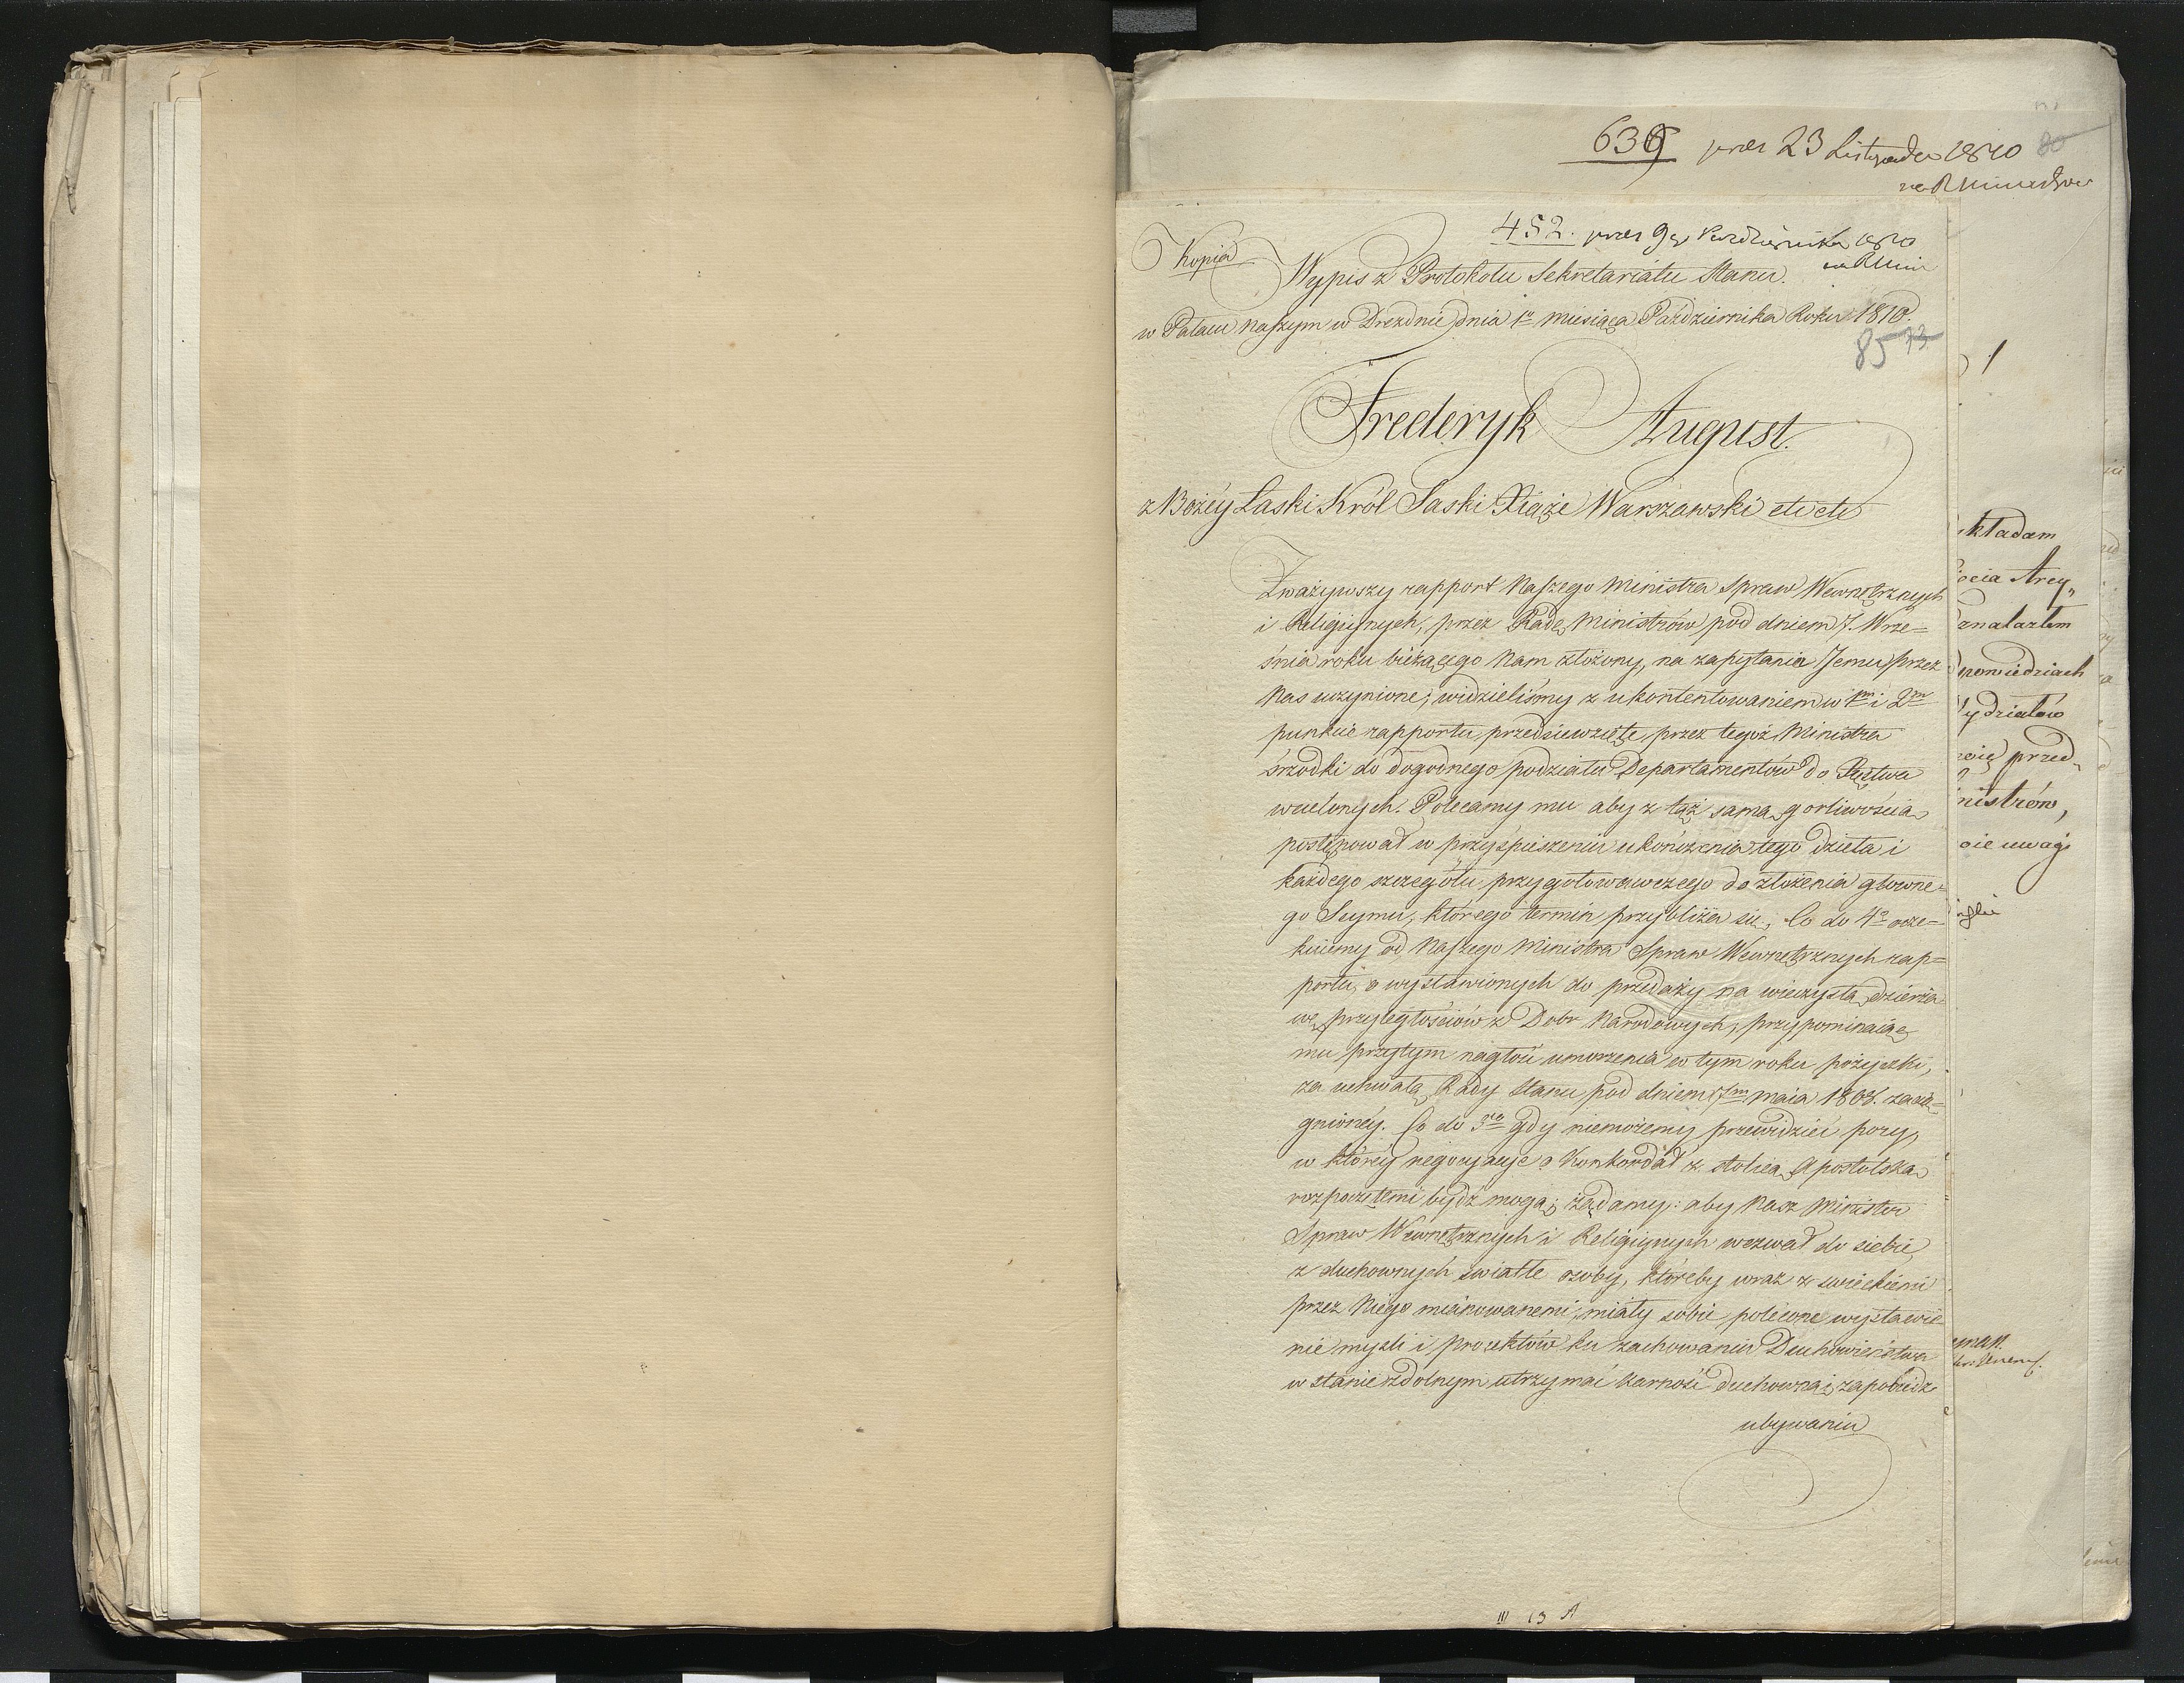 639 pres 23 Listopada 1810
na R Ministrów
80
452. pres 9 go Października 1810
na R Min
Kopia
Wypis z Protokołu Sekretariatu Stanu.
w Pałacu naszym w Dreźnie dnia 1o miesiąca Października Roku 1810.
85 73
Frederyk August.
z Bożey Łaski Król Saski Xiąże Warszawski etc etc
Zważywszy rapport Naszego Ministra Spraw Wewnętrznych
i Religijnych, przez Radę Ministrów pod dniem 7. Wrze=
śnia roku bieżącego Nam złożony, na zapytania Jemu przez
Nas uczynione; widzieliśmy z ukontentowaniem w 1m i 2m
punkcie rapportu przedsiewzięte przez tegoż Ministra
śrzodki do dogodnego podziału Departamentów do Xięstwa
wcielonych. Polecamy mu aby z tąż samą gorliwością
postępował w przyśpieszeniu ukończenia tego dzieła i
każdego szczegółu przygotowawczego do złożenia główne=
go Seymu, którego termin przybliża się. Co do 4o ocze=
kuiemy od Naszego Ministra Spraw Wewnętrznych rap=
portu, o wystawionych do przedaży na wieczystą dzierża
wę przyległościów z Dobr Narodowych, przypominaiąc
mu przytym nagłość umorzenia w tym roku pożyczki,
za uchwałą Rady Stanu pod dniem 7m maia 1808. zacią=
gnioney. Co do 5to gdy niemożemy przewidzieć pory,
w którey negocyacye o Konkordat z stolicą Apostolską
rozpoczętemi bydź mogą; żądamy: aby Nasz Minister
Spraw Wewnętrznych i Religijnych wezwał do siebie
z duchownych światłe osoby, któreby wraz z swieckiemi
przez Niego mianowanemi, miały sobie polecone wystawie
nie myśli i proiektów ku zachowaniu Duchowieństwa
w stanie zdolnym utrzymać karność duchowną i zapobiedz
ubywaniu
III 13 A
1
kładam
ęcia Arcy„
znalazłem
powiedziach
ydziałów
cię przed„
nistrów,
oie uwagi